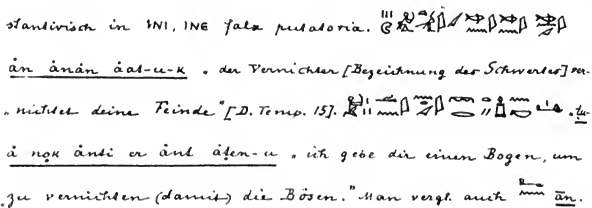 stantivisch in ⲓⲛⲓ, ⲓⲛⲉ falx putatoria.
ȧn ȧnȧn ȧat-u-k „der Vernichter [Bezeichnung des Schwertes] ver-
„nichtet deine Feinde“ [D. Temp. 15]. ṭu-
ȧ nok ȧnti er ȧnt ȧṭen-u „ich gebe dir einen Bogen, um
„zu vernichten (damit) die Bösen.“ Man vergl. auch ān.